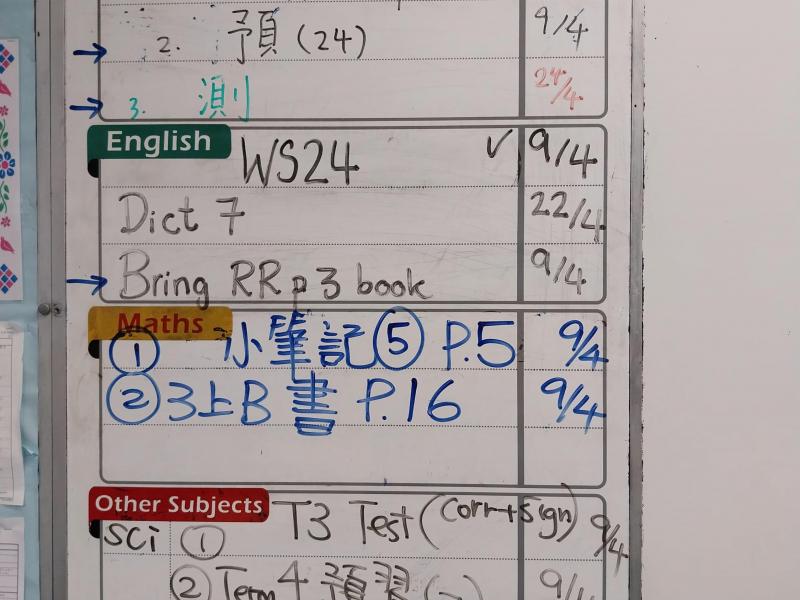 2. 預 (24) 9/4
3. 測 24/4
English WS24 ✓ 9/4
Dict 7 22/4
Bring RR p 3 book 9/4
Maths
① 小筆記⑤ P.5 9/4
② 3上B 書 P.16 9/4
Other Subjects T3 Test (corr+sign) 9/4
SCi ①
② Term 4 預習 (一) 9/4